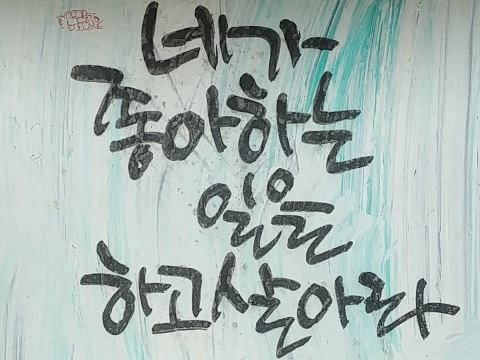 네가
좋아하는
일을
하고살아라